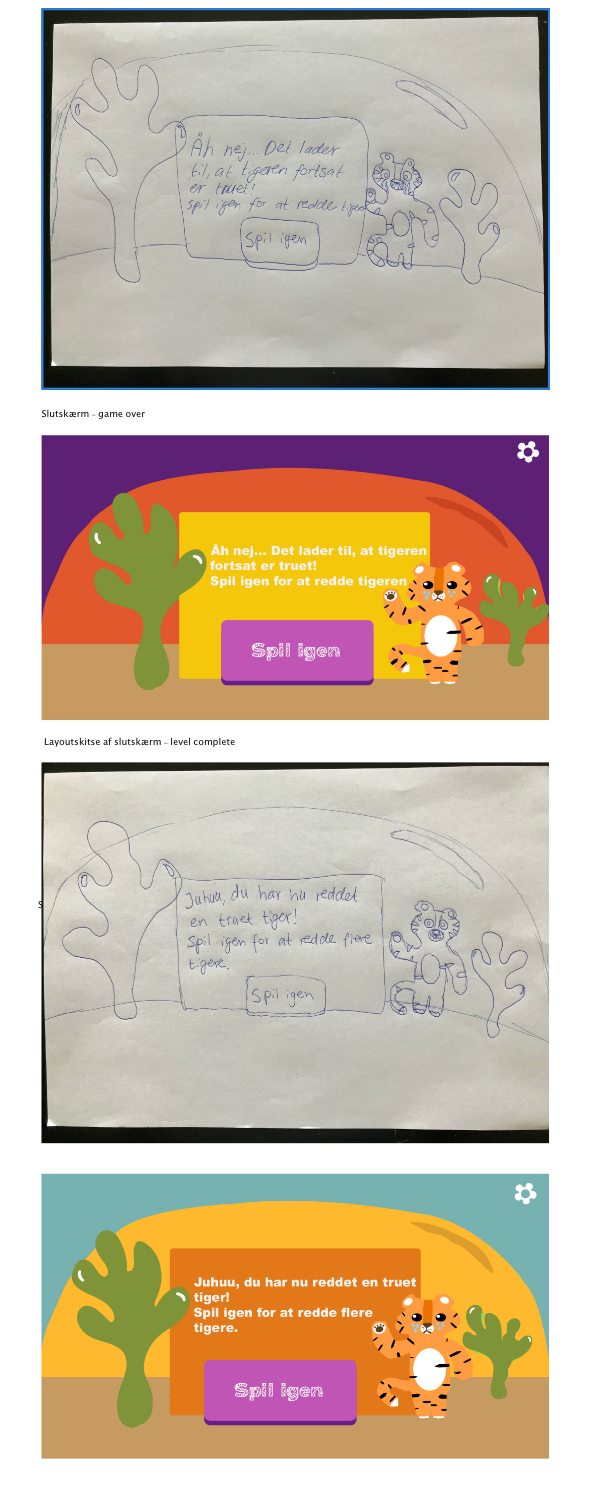 Åh nej... Det lader
til, at tigeren fortsat
er truet!
Spil igen for at redde tigeren
Spil igen
Slutskærm - game over
Åh nej... Det lader til, at tigeren
fortsat er truet!
Spil igen for at redde tigeren
Spil igen
Layoutskitse af slutskærm - level complete
S
Juhuu, du har nu reddet
en truet tiger!
Spil igen for at redde flere
tigere.
Spil igen
Juhuu, du har nu reddet en truet
tiger!
Spil igen for at redde flere
tigere.
Spil igen